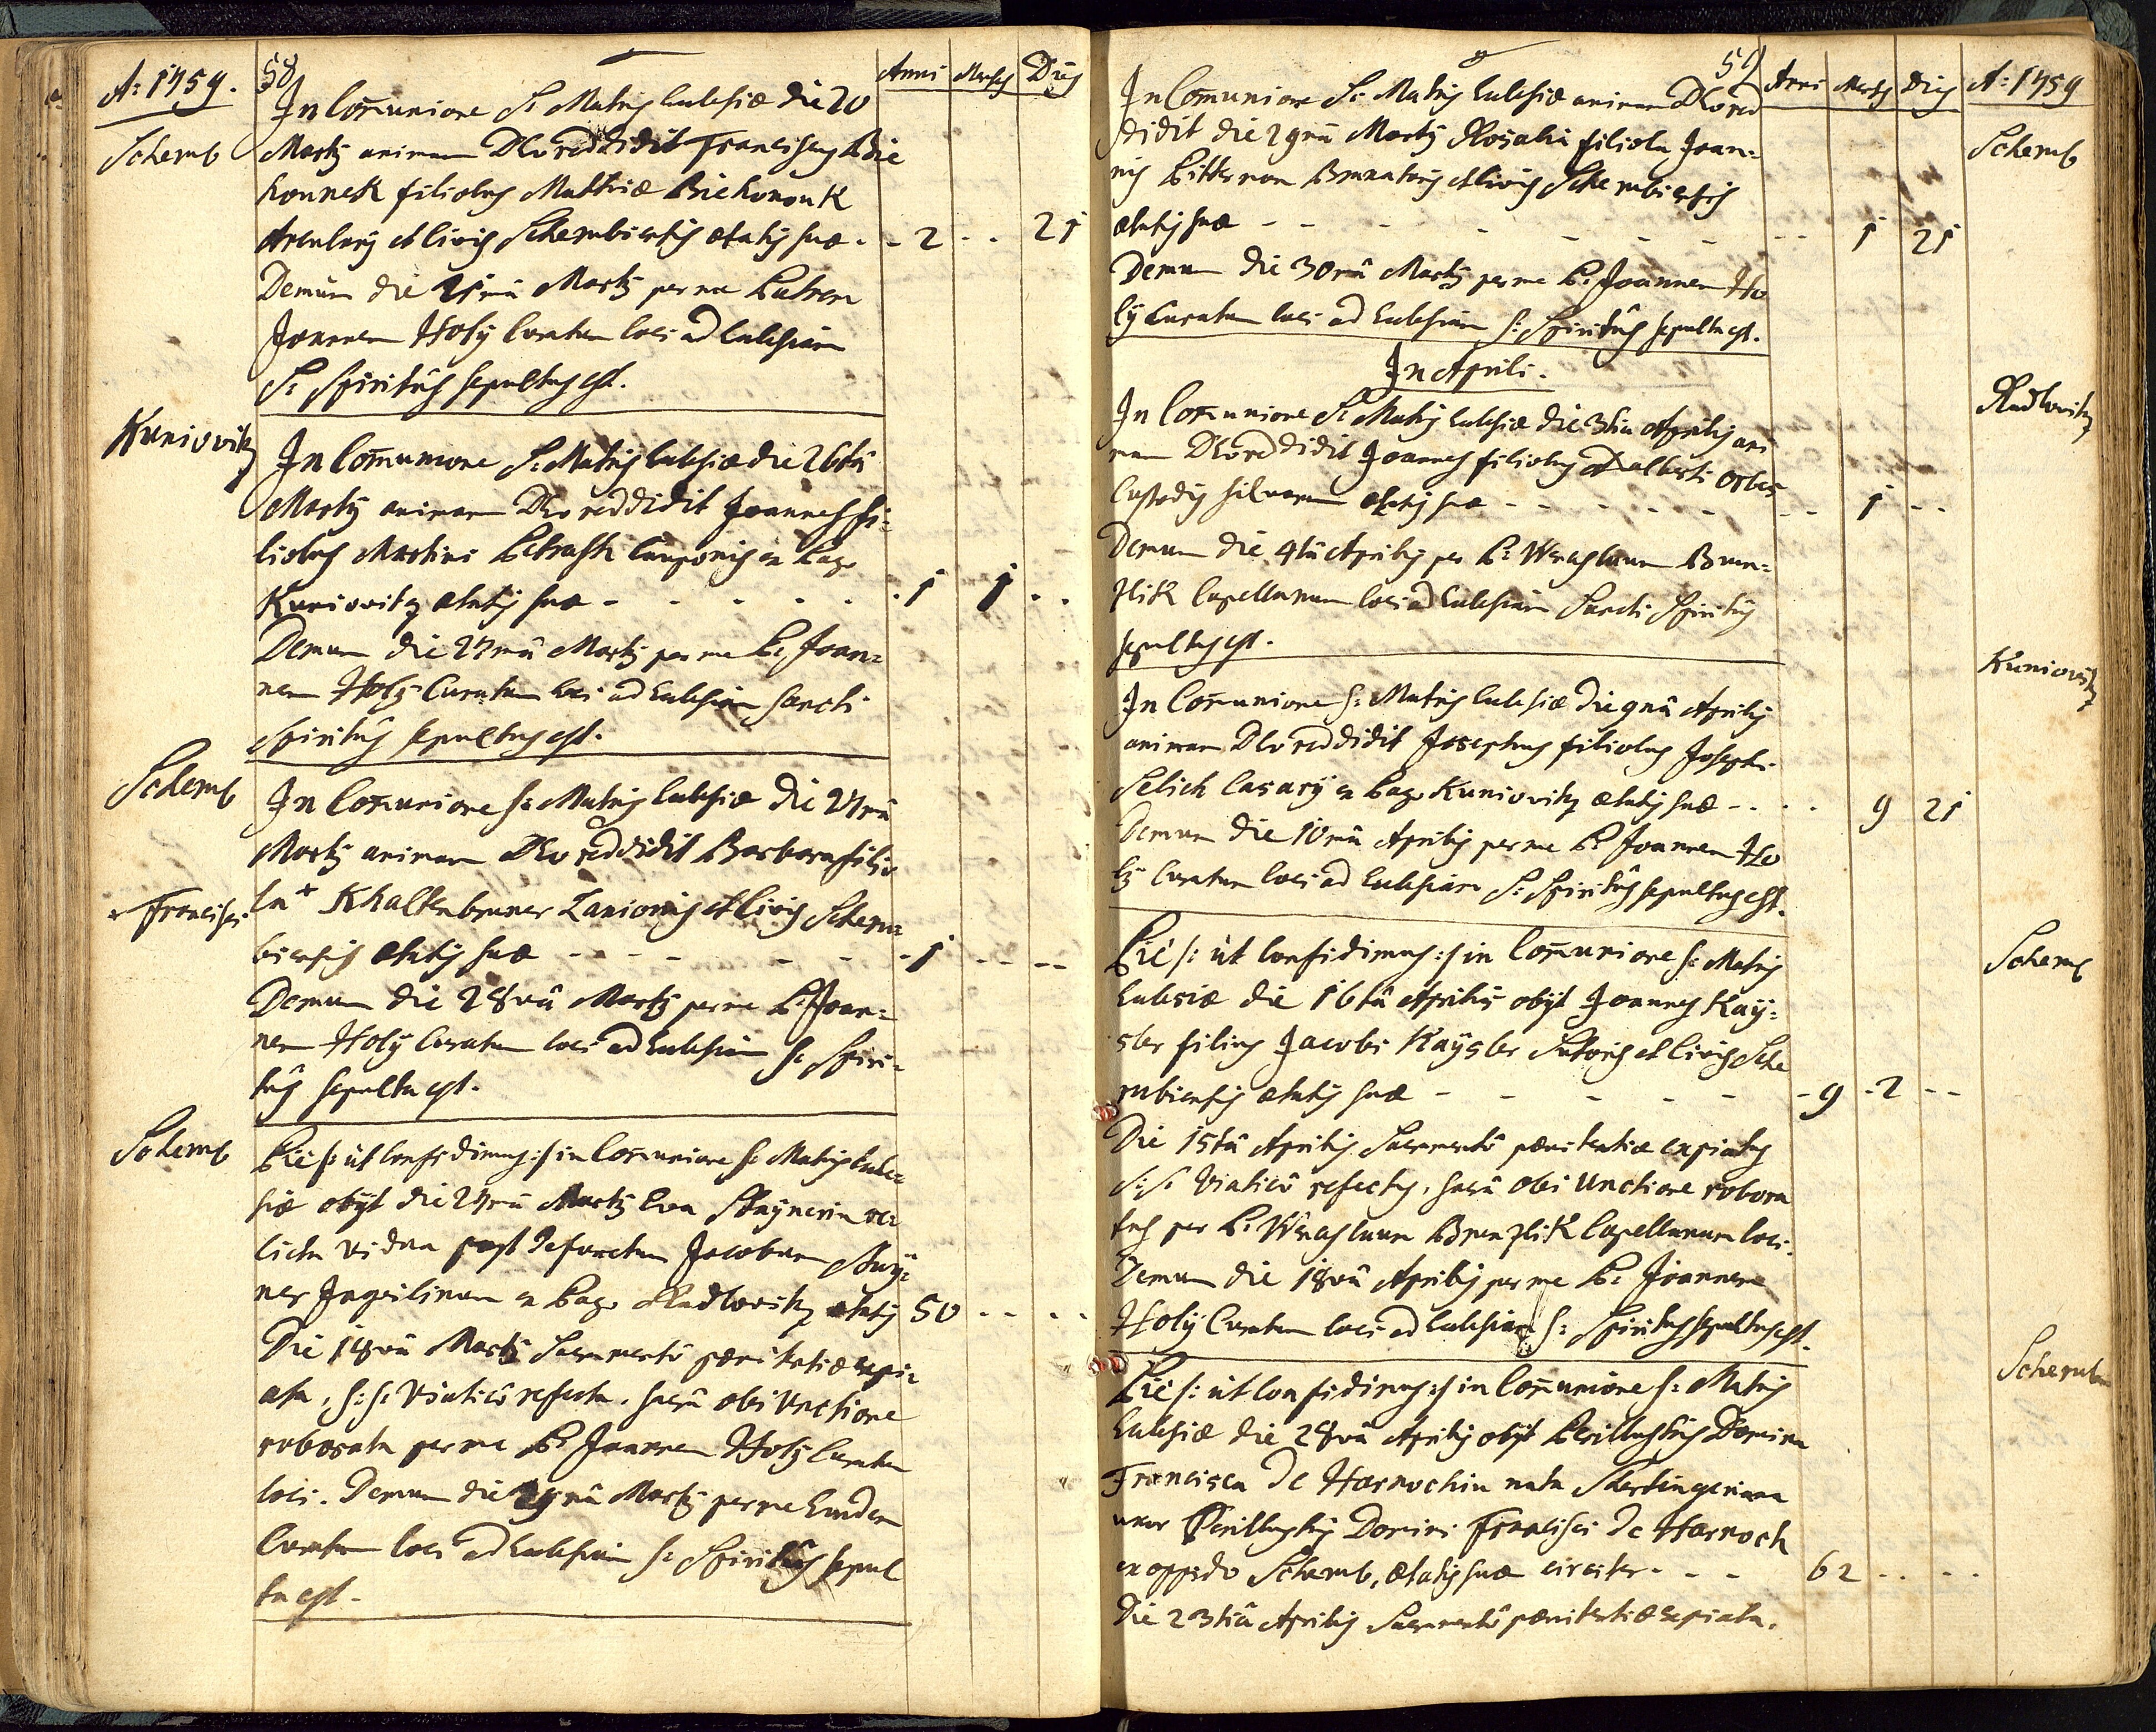 A: 1759.
58
Anni Menses Dies
Schemb
In Com̄unione S: Matris Ecclesiæ die 20
Martÿ animam DEo reddidit Franciscus Bie
honnek filiolus Mathiæ Biehonouk
Arculary et Civis Schembiensis ætatis suæ - - 2 - - 21
Demum die 21mâ Martÿ per me Patrem
Joannem Holÿ Curatum loci ad Ecclesiam
S: Spiritûs sepultus est.
Kuniovitz
In Com̄unione S: Matris Ecclesiæ die 26tâ
Martÿ animam DEo reddidit Joannes fi=
liolus Martini Petrasch Cauponis in Pago
Kuniovitz ætatis suæ - - - - - - 1 1 - -
Demum die 27mâ Martÿ per me P: Joan=
nem Holÿ Curatum loci ad Ecclesiam Sancti
Spiritûs sepultus est.
Schemb
In Com̄unione S: Matris Ecclesiæ die 27mâ
Martÿ animam DEo reddidit Barbara filio
la + Khaltenbruner Lanionis et Civis Schem=
+ Francisci
biensis ætatis suæ - - - - - - 1 - - - -
Demum die 28vâ Martÿ per me P: Joan=
nem Holÿ Curatum loci ad Ecclesiam S: Spiri=
tûs sepulta est.
Schemb
Piè /: ùt confidimus :/ in Com̄unione S: Matris Eccle=
siæ obÿt die 27mâ Martÿ Eva re=
licta vidua post defunctum Jacobum
ner Inquilinum in Pago Radlovitz ætatis 50 - - - -
Die 18vâ Martÿ Sacramentô pænitentiæ expi=
ata, S: S: Viaticô refecta, sacrâ olei Unctione
roborata per me P: Joannem Holÿ Curatum
loci. Demum die 29nâ Martÿ per me Eundem
Curatum loci ad Ecclesiam S: Spiritûs sepul
ta est.
59
Anni Menses Dies A: 1759
Schemb
In Com̄unione S: Matris Ecclesiæ animam DEo red
didit die 29nâ Martÿ Rosalia filiola Joan=
nis Bitterman Muratoris et Civis Schembiensis
ætatis suæ - - - - - - - - 1 21
Demum die 30mâ Martÿ per me P: Joannem Ho
lÿ Curatum loci ad Ecclesiam S: Spiritûs sepulta est.
In Aprili.
Radlovitz
In Com̄unione S: Matris Ecclesiæ die 3tiâ Aprilis ani
mam DEo reddidit Joannes filiolus Adalberti
Custodis silvarum ætatis suæ - - - - - - - 1 - -
Demum die 4tâ Aprilis per P: Wenceslaum Bren=
zlik Capellanum loci ad Ecclesiam Sancti Spiritûs
sepultus est.
Kuniovitz
In Com̄unione S: Matris Ecclesiæ die 9nâ Aprilis
animam DEo reddidit Josephus filiolus Josephi
Selich Casarÿ in Pago Kuniovitz ætatis suæ - - - - 9 21
Demum die 10mâ Aprilis per me P: Joannem Ho
lÿ Curatum loci ad Ecclesiam S: Spiritûs sepultus est.
Schemb
Piè /: ùt confidimus :/ in Com̄unione S: Matris
Ecclesiæ die 16tâ Aprilis obÿt Joannes Kaÿ=
sler filius Jacobi Kaÿsler Sutoris et Civis Sche
mbiensis ætatis suæ - - - - - - 9 - 2 - -
Die 15tâ Aprilis Sacramentô pænitentiæ expiatus
S: S: Viaticô refectus, sacrâ olei Unctione robora
tus per P: Wenceslaum Brenzlik Capellanum loci.
Demum die 18vâ Aprilis per me P: Joannem
Holÿ Curatum loci ad Ecclesiam S: Spiritûs sepultus est.
Schemb
Piè /: ùt confidimus :/ in Com̄unione S: Matris
Ecclesiæ die 28vâ Aprilis obÿt Perillustris Domina
Francisca de Harnochin nata
uxor Perillustris Domini Francisci de Harnoch
in oppido Schemb, ætatis suæ circiter - - - 62 - - - -
Die 23tiâ Aprilis Sacramentô pænitentiæ expiata,